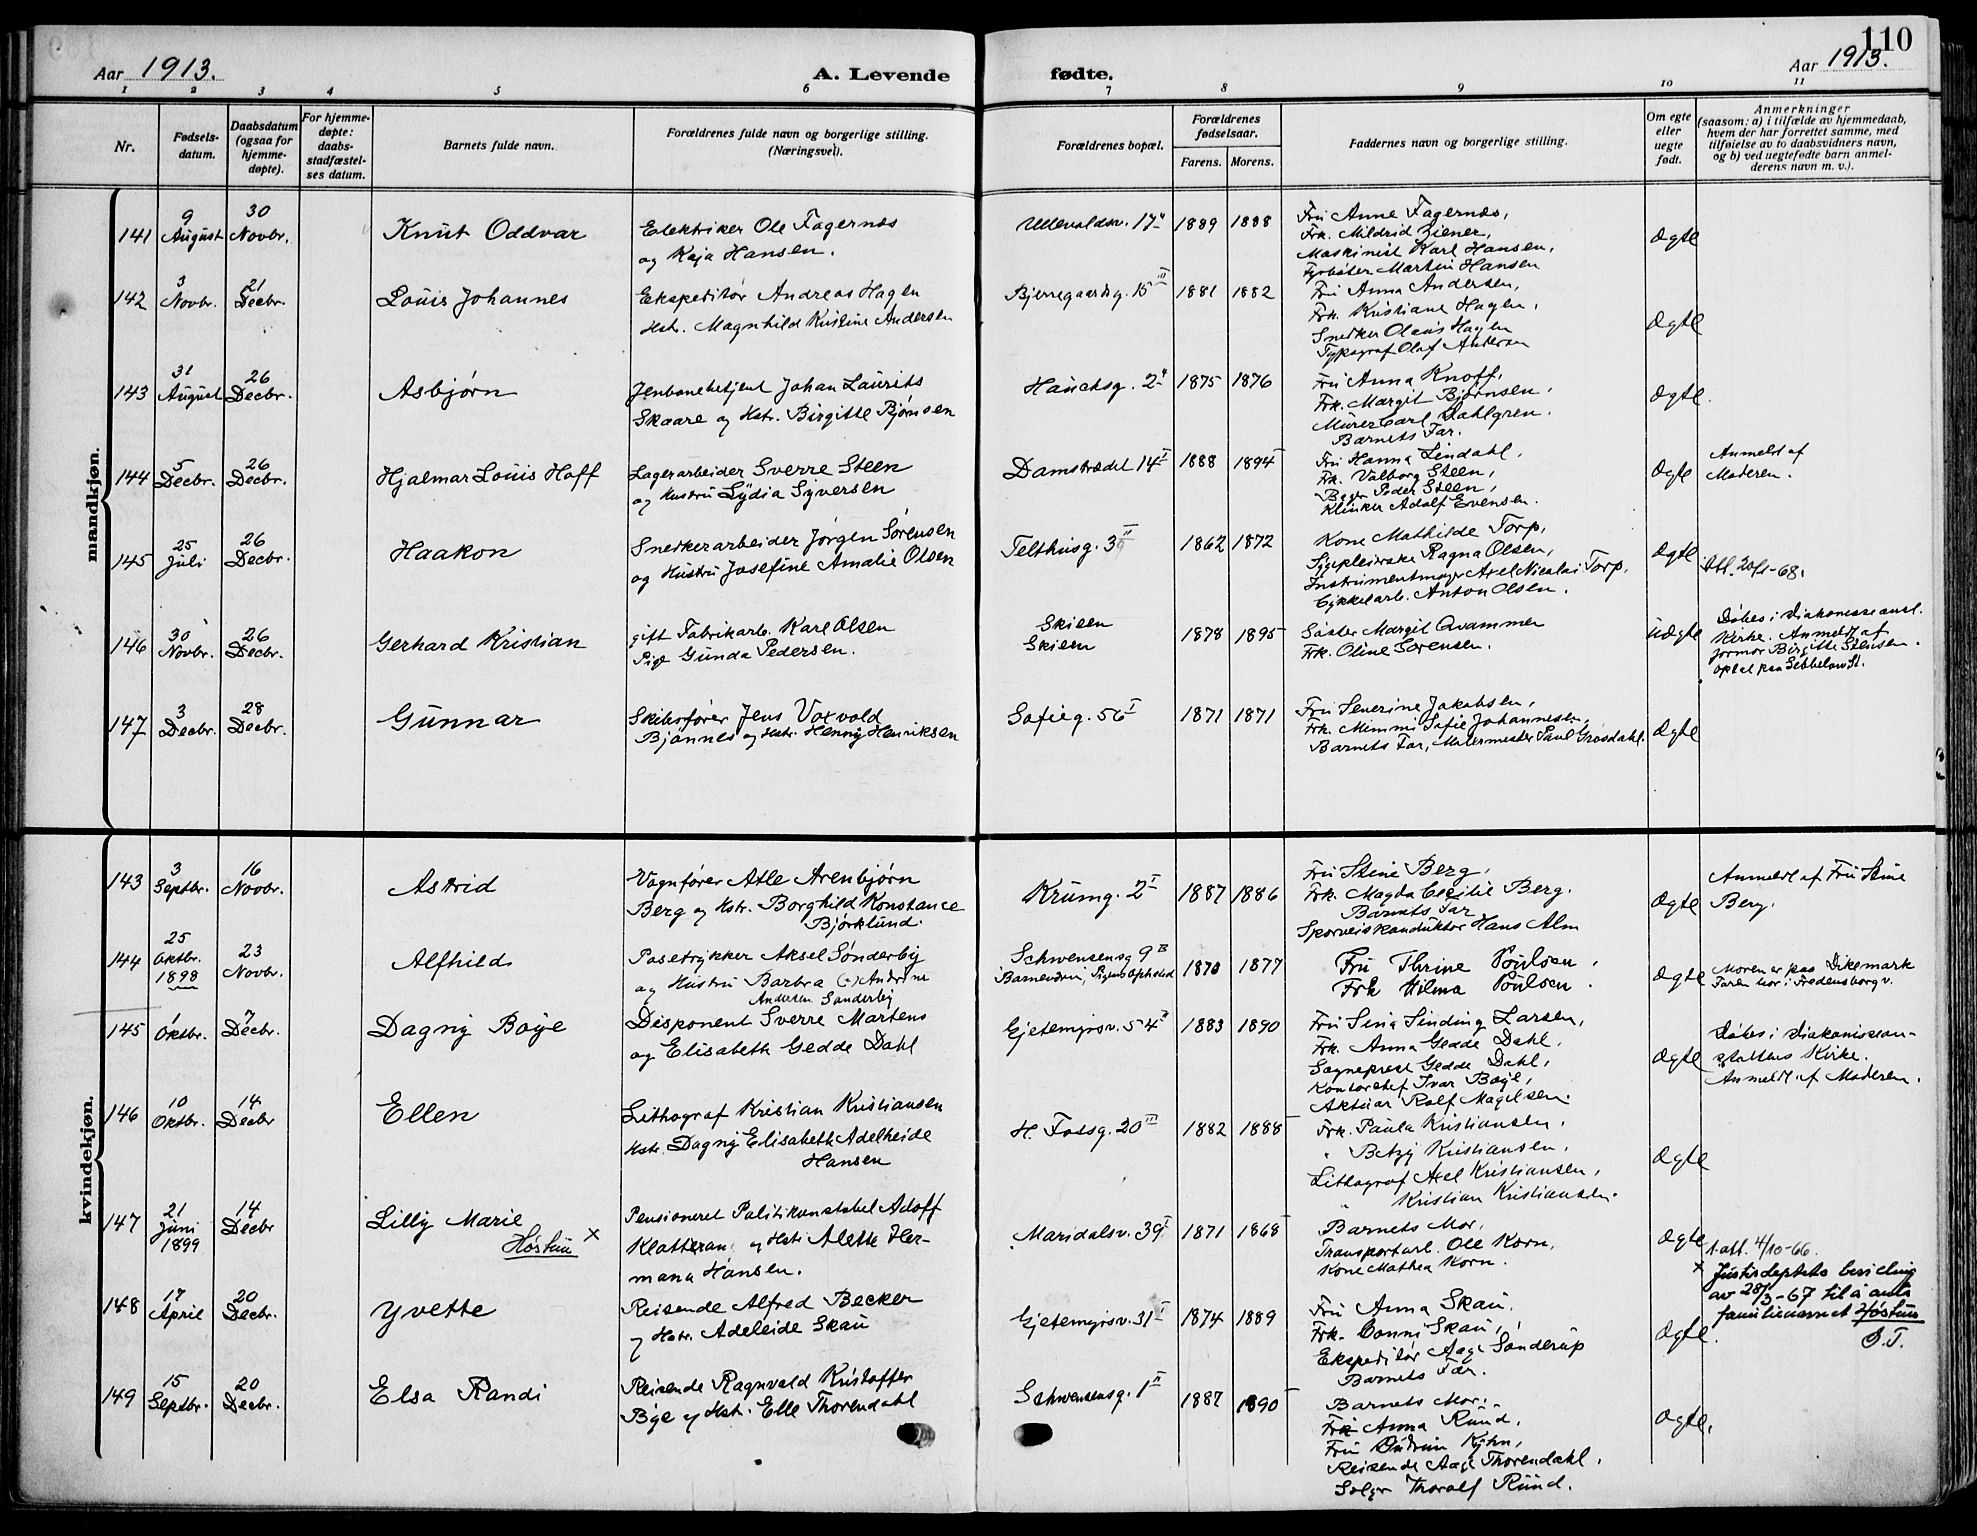 110
Aar 1913.
A. Levende fødte.
Aar 1913.
1 2 3 4 5 6 7 8 9 10 11
Nr.
Fødsels-
datum.
Daabsdatum
(ogsaa for
hjemme-
døpte).
For hjemme-
døpte:
daabs-
stadfæstel-
ses datum.
Barnets fulde navn.
Forældrenes fulde navn og borgerlige stilling.
(Næringsvei).
Forældrenes bopæl.
Forældrenes
fødselsaar.
Farens. Morens.
Faddernes navn og borgerlige stilling.
Om egte
eller
uegte
født.
Anmerkninger
(saasom: a) i tilfælde av hjemmedaab,
hvem der har forrettet samme, med
tilføielse av to daabsvidners navn,
og b) ved uegtefødte barn anmel-
derens navn m. v.).
mandkjøn.
141 9 August 30 Novbr. Knut Oddvar
Elektriker Ole Fagernæs
og Kaja Hansen.
Ullevaldsv. 17 1889 1888
Fru Anne Fagernæs,
Frk. Mildrid Ziener,
Maskinist Karl Hansen,
Fyrbøter Martin Hansen
Ægte
142 3 Novbr. 21 Decbr. Louis Johannes
Ekspeditør Andreas Hagen
Hstr. Magnhild Kristine Andersen
Bjerregaardsg. 15 II 1881 1882
Fru Anna Andersen,
Frk. Kristiane Hagen,
Snedker Olaus Hagen
Typograf Olaf Andersen
Ægte
143 31 August 26 Decbr. Asbjørn
Jenbanebetjent Johan Laurits
Skaare og Hstr. Birgitte Bjørnsen
Hauchsg. 2 1875 1876
Fru Anna Knoff,
Frk. Margit Bjørnsen,
Murer Carl Dahlgren.
Barnets Far.
Ægte.
144 5 Decbr. 26 Decbr. Hjalmar Louis Hoff
Lagerarbeider Sverre Steen
og Hustru Lydia Syversen
Damstrædet 14 I 1888 1894
Fru Hanna Lindahl,
Frk. Valborg Steen,
Bager Peder Steen,
Klinker Adolf Evensen.
Ægte
Anmeldt af
Moderen.
145 25 Juli 26 Decbr. Haakon
Snedkerarbeider Jørgen Sørensen
og Hustru Josefine Amalie Olsen
Telthusg. 3 II 1862 1872
Kone Mathilde Torp,
Sypleierske Ragna Olsen,
Instrumentmager Axel Nicolai Torp,
Cykkelarb. Anton Olsen.
Ægte
146 30 Novbr. 26 Decbr. Gerhard Kristian
gift Fabrikarb. Karl Olsen
Pige Gunda Pedersen.
Skien
Skien
1878 1895
Søster Margit Qvammen
Frk. Oline Sørensen.
Uægte
Døbes i Diakonisseanst.
Kirke. Anmeldt af
formor Birgitte Stensen.
optat paa Sebbelow St.
147 3 Decbr. 28 Decbr. Gunnar
Skibsfører Jens Voxvold
Bjønnes og Hstr. Henny Henriksen
Sofieg. 56 I 1871 1871
Fru Severine Jakobsen,
Frk. Mimmi Sofie Johannesen,
Barnets Far, Malermester Paul Grøsdahl.
Ægte
kvindekjøn.
143 3 Septbr. 16 Novbr. Astrid
Vognfører Atle Arenbjørn
Berg og Hstr. Borghild Konstance
Bjørklund.
Krumg. 2 I 1887 1886
Fru Stine Berg,
Frk. Magda Cecilie Berg.
Barnets Far
Sporveiskonduktør Hans Alm
Ægte
Anmeldt af Fru Stine
Berg.
144 25 Oktbr. 1898 23 Novbr. Alfhild
Posetrykker Aksel Sønderby
og Hustru Barbra Andrine
Andersen Sønderby
Schwensensg 9 B
1870 1877
Fru Thrine Poulsen,
Frk Hilma Poulsen.
Ægte
Moren er paa Dikemark
Faren bor i Fredensborgv.
145 Oktbr. 7 Decbr. Dagny Boye
Disponent Sverre Martens
og Elisabeth Gedde Dahl
Gjetemyrsv. 54 II 1883 1890
Fru Sina Sinding Larsen,
Frk. Anna Gedde Dahl.
Sogneprest Gedde Dahl,
Kontorchef Ivar Boye,
Aktuar Rolf Magelsen.
Ægte
Døbes i Diakonissean-
staltens Kirke.
Anmeldt af Moderen.
146 10 Oktbr. 14 Decbr Ellen
Lithograf Kristian Kristiansen
Hstr. Dagny Elisabeth Adelheide
Hansen
H. Fossg. 20 III 1882 1888
Frk. Paula Kristiansen.
" Betzy Kristiansen,
Lithograf Axel Kristiansen,
" Kristian Kristiansen.
Ægte
147 21 Juni 1899 14 Decbr Lilly Marie
Høstun x
Pensioneret Politikonstabel Adolf
Klatteran og Hstr Alette Her-
mana Hansen.
Maridalsv. 39 I 1871 1868
Barnets Mor,
Transportarb. Ole Korn,
Kone Mathea Korn.
Ægte
1. att. 4/10-66.
x Justisdeptets bevilling
av 28/3-67 til å anta
familienavnet Høstun
148 17 April 20 Decbr. Yvette
Reisende Alfred Becker
og Hstr. Adeleide Skau
Gjetemyrsv. 31 I 1874 1889
Fru Anna Skau,
Frk. Conni Skau,
Ekspeditør Aage Sønderup
Barnets Far.
Ægte.
149 15 Septbr. 20 Decbr. Elsa Randi
Reisende Ragnvald Kristoffer
Bye og Hstr. Elle Thorendahl
Schwensensg. 1 II 1887 1890
Barnets Mor,
Frk Anna Rund,
Fru Gudrun Kyhn,
Reisende Aage Thorendahl,
Selger Thoralf Rund.
Ægte.